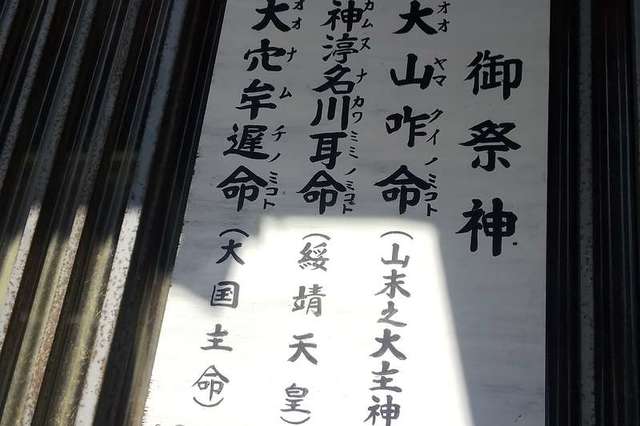 御祭神
大山咋命(山末之大主神
オオヤマクイノミコト
神渟名川耳命(綏靖天皇)
カムヌナカワミミノミコト
大穴牟遲命(大国主命)
オオナムチノミコト